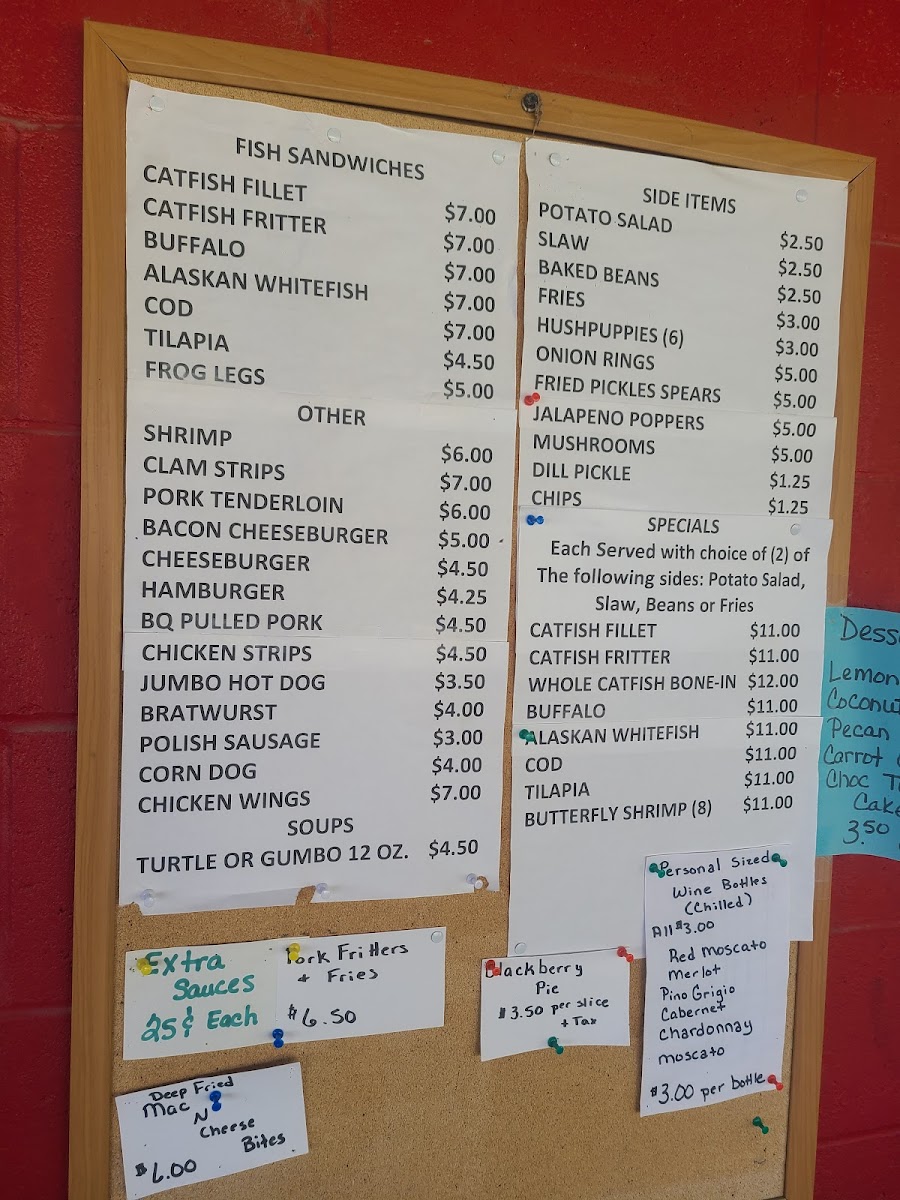 FISH SANDWICHES
CATFISH FILLET $7.00
CATFISH FRITTER $7.00
BUFFALO $7.00
ALASKAN WHITEFISH $7.00
COD $7.00
TILAPIA $4.50
FROG LEGS $5.00
OTHER
SHRIMP $6.00
CLAM STRIPS $7.00
PORK TENDERLOIN $6.00
BACON CHEESEBURGER $5.00
CHEESEBURGER $4.50
HAMBURGER $4.25
BQ PULLED PORK $4.50
CHICKEN STRIPS $4.50
JUMBO HOT DOG $3.50
BRATWURST $4.00
POLISH SAUSAGE $3.00
CORN DOG $4.00
CHICKEN WINGS $7.00
SOUPS
TURTLE OR GUMBO 12 OZ. $4.50
SIDE ITEMS
POTATO SALAD $2.50
SLAW $2.50
BAKED BEANS $2.50
FRIES $3.00
HUSHPUPPIES (6) $3.00
ONION RINGS $5.00
FRIED PICKLES SPEARS $5.00
JALAPENO POPPERS $5.00
MUSHROOMS $5.00
DILL PICKLE $1.25
CHIPS $1.25
SPECIALS
Each Served with choice of (2) of
The following sides: Potato Salad,
Slaw, Beans or Fries
CATFISH FILLET $11.00
CATFISH FRITTER $11.00
WHOLE CATFISH BONE-IN $12.00
BUFFALO $11.00
ALASKAN WHITEFISH $11.00
COD $11.00
TILAPIA $11.00
BUTTERFLY SHRIMP (8) $11.00
Extra
Sauces
25¢ Each
Pork Fritters
+ Fries
$6.50
Deep Fried
Mac N
Cheese
Bites
$6.00
Blackberry
Pie
$3.50 per slice
+ Tax
Personal Sized
Wine Bottles
(Chilled)
All $3.00
Red Moscato
Merlot
Pino Grigio
Cabernet
Chardonnay
moscato
$3.00 per bottle
Dess
Lemon
Coconut
Pecan
Carrot
Choc
Cake
3.50